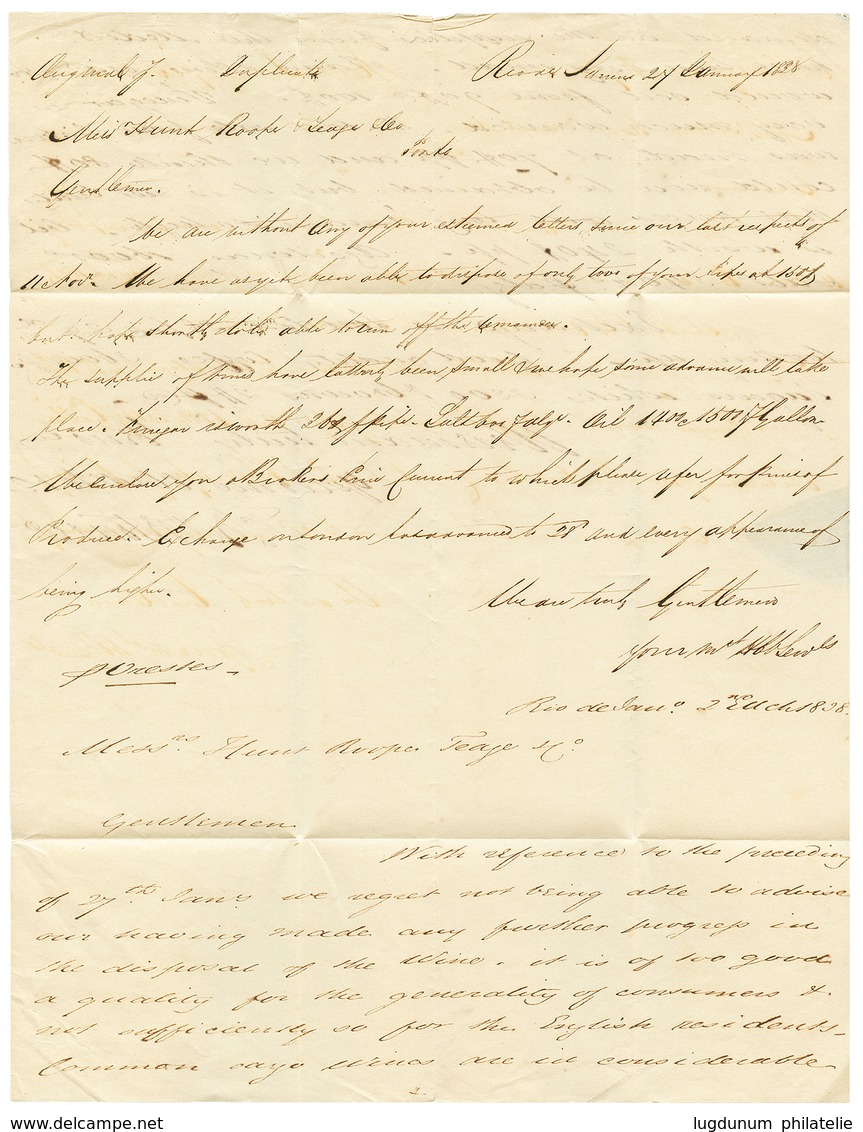 Original of Duplicate Rio de Janeiro 27 January 1838
Messrs Hunt Roope Teage & Co
Porto
Gentlemen.
We are without any of your esteemed letters since our last respects of
11 Novr. We have as yet been able to dispose of only two of your Pipes at 150$
but hope shortly to be able to run off the remainder.
The supplies of wines have latterly been small & we hope some advance will take
place. Vinegar is worth Pipe. Salt Oil 1400 a 1500 Gallon
We enclose you a Brokers Price Current to which please refer for prices of
Produce. Exchange on London has advanced to and every appearance of
being higher.
We are truly Gentlemen
Your
p Orestes.
Rio de Jano. 2nd Mch 1838.
Messrs Hunt Roope Teage & Co
Gentlemen
With reference to the preceding
of 27th Jany we regret not being able to advise
our having made any further progress in
the disposal of the Wine. it is of too good
a quality for the generality of consumers &
not sufficiently so for the English residents.
Common wines are in considerable
delcampe.net
lugdunum philatelie